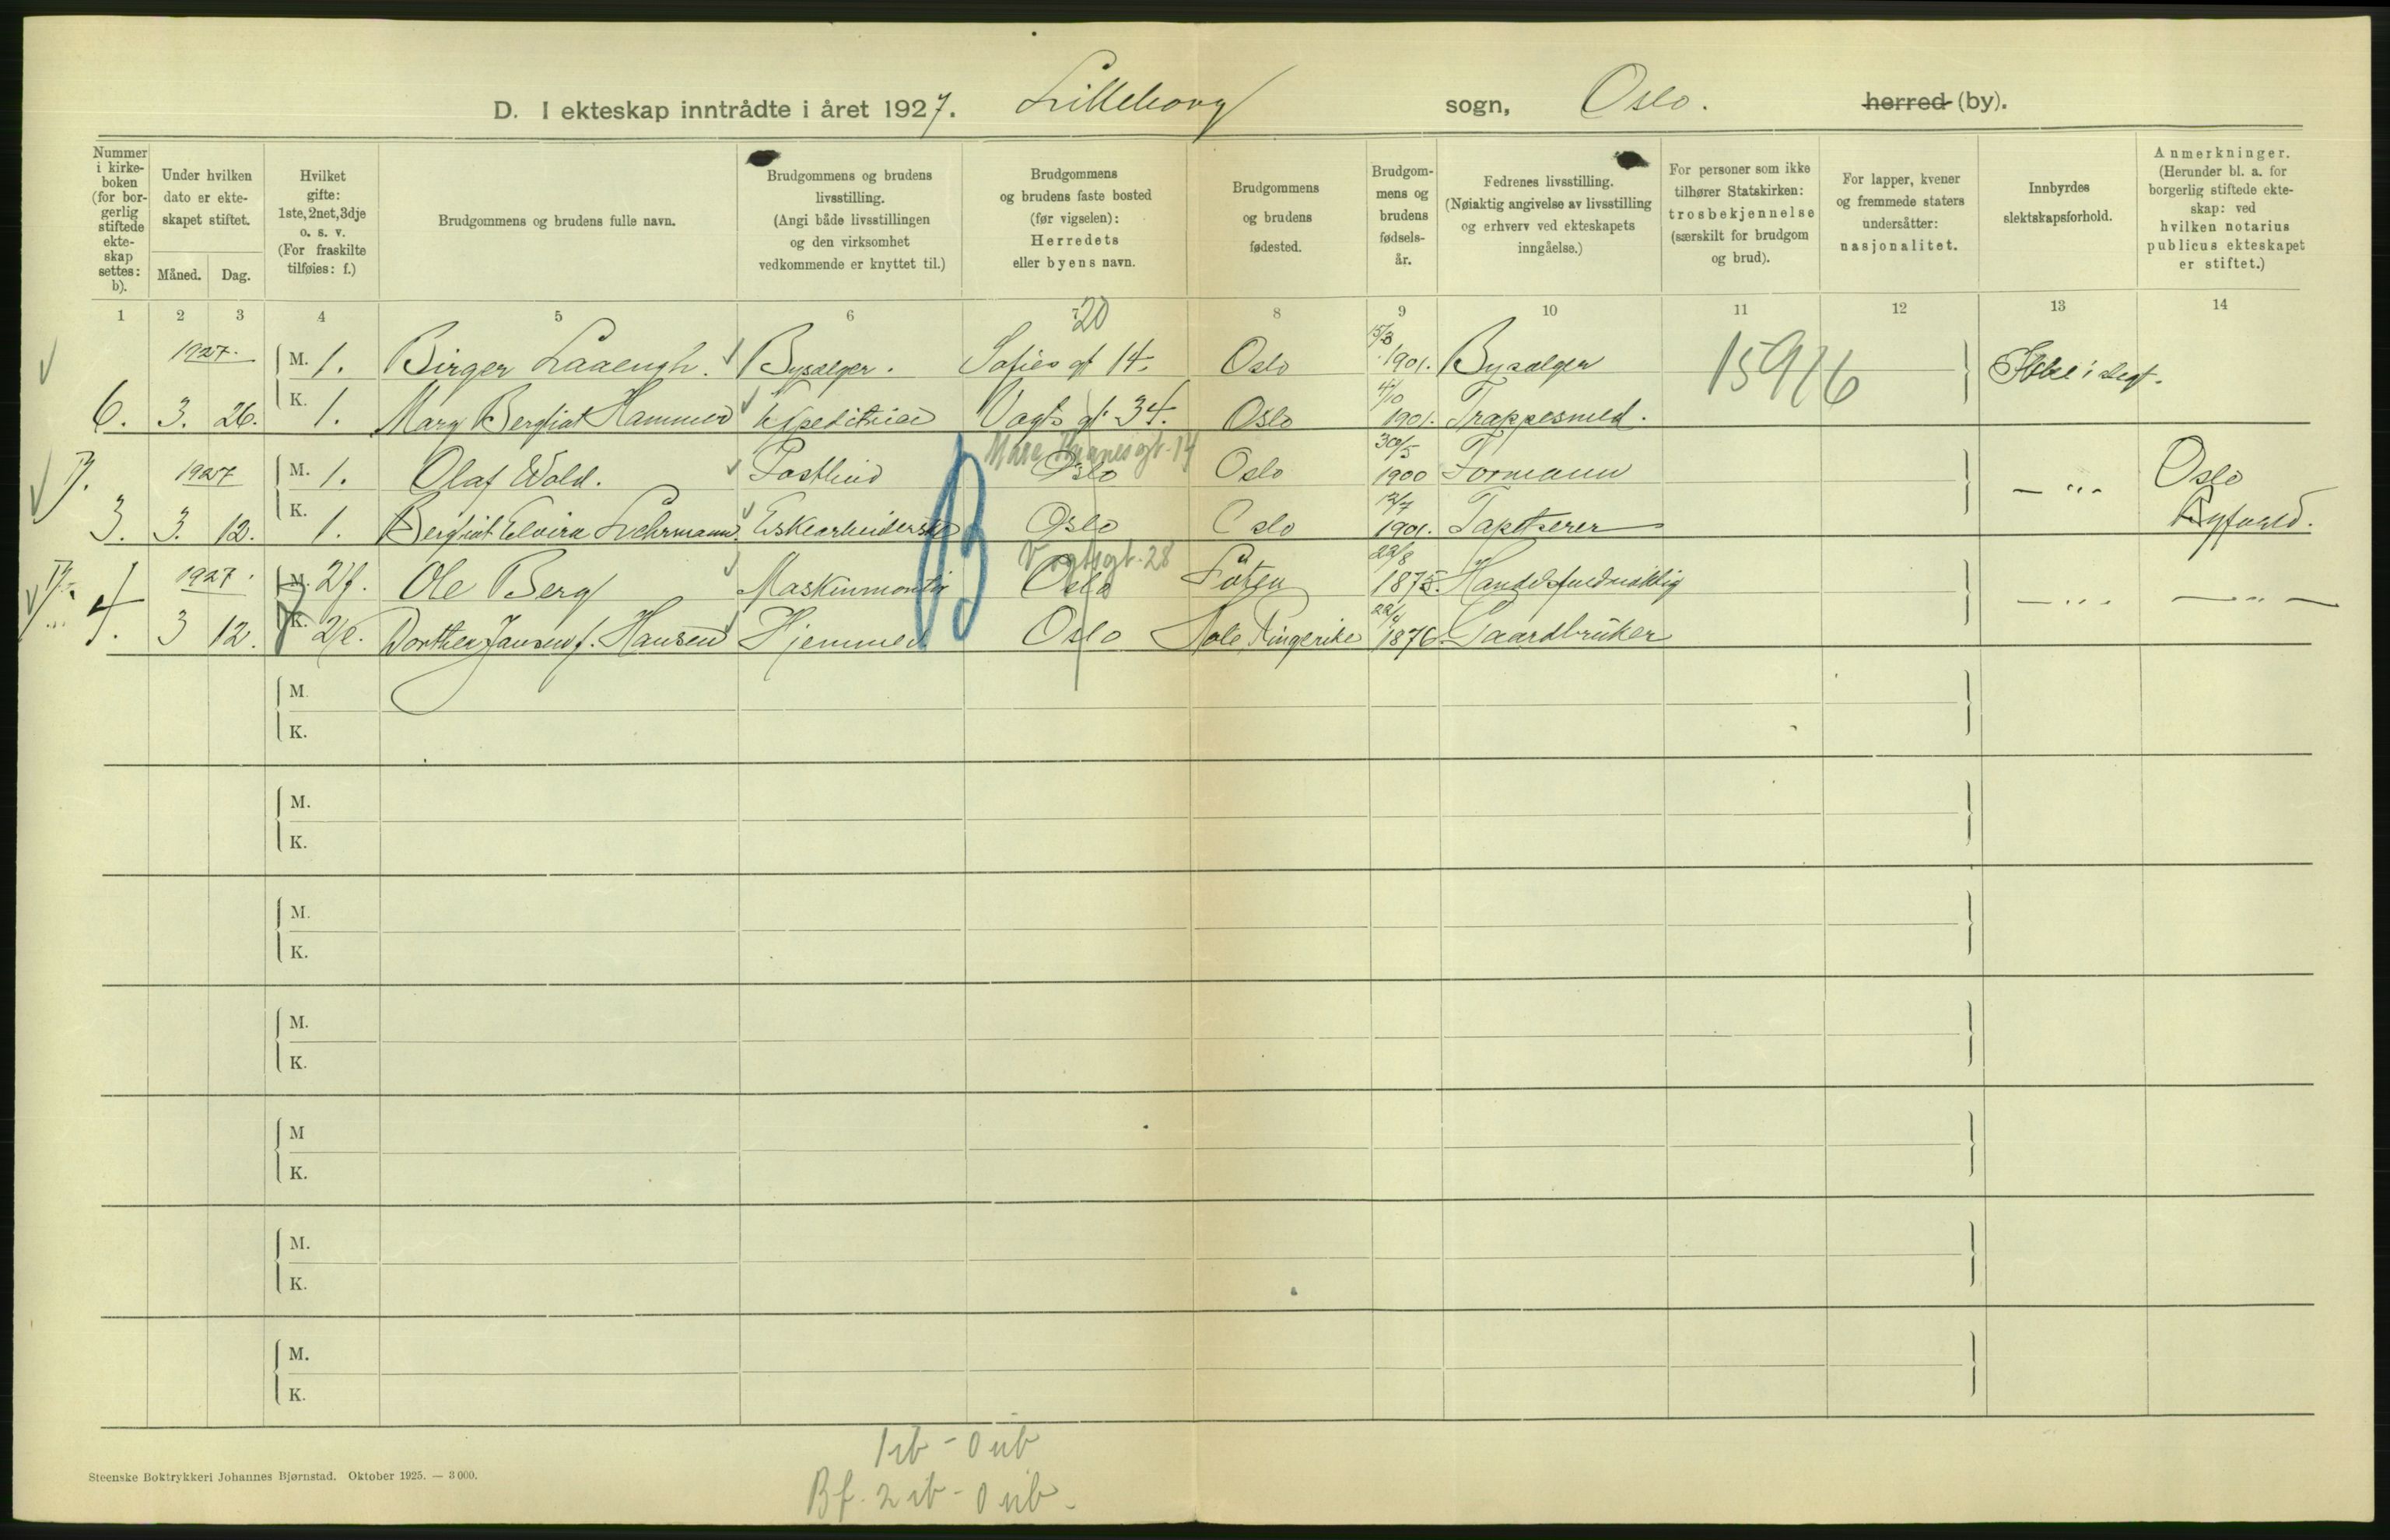 D. I ekteskap inntrådte i året 1927. Lilleborg sogn, Oslo. herred (by).
Nummer i kirkeboken (for borgerlig stiftede ekteskap settes: b).
Under hvilken dato er ekteskapet stiftet.
Måned. Dag.
Hvilket gifte: 1ste, 2net, 3dje o. s. v. (For fraskilte tilføies: f.)
Brudgommens og brudens fulle navn.
Brudgommens og brudens livsstilling. (Angi både livsstillingen og den virksomhet vedkommende er knyttet til.)
Brudgommens og brudens faste bosted (før vigselen): Herredets eller byens navn.
Brudgommens og brudens fødested.
Brudgommens og brudens fødselsår.
Fedrenes livsstilling. (Nøiaktig angivelse av livsstilling og erhverv ved ekteskapets inngåelse.)
For personer som ikke tilhører Statskirken: trosbekjennelse (særskilt for brudgom og brud).
For lapper, kvener og fremmede staters undersåtter: nasjonalitet.
Innbyrdes slektskapsforhold.
Anmerkninger. (Herunder bl. a. for borgerlig stiftede ekteskap: ved hvilken notarius publicus ekteskapet er stiftet.)
1 2 3 4 5 6 7 8 9 10 11 12 13 14
20
1927. M. 1. Birger Laaengh. Bysælger. Sofies gt 14. Oslo 15/3 1901. Bysælger 15916 Ikke i slegt.
6. 3. 26. K. 1. Mary Bergliot Hammer Ekspeditrice Vogts gt. 34. Oslo 4/10 1901. Trappesmed.
1927 M. 1. Olaf Wold. Postbud Oslo Oslo 30/5 1900 Formann — „ — Oslo
3. 3. 12. K. 1. Bergliot Elvira Lehrmann. Eskearbeiderske Oslo Oslo 12/7 1901. Tapetserer Byfogd.
B
Vogtsgt. 28
4. 1927. M. 2f. Ole Berg Maskinmontør Oslo Løten 22/8 1875. Handelsfuldmektig — „ — — „ —
3 12. K. 2/e. Dorthea Jansen f. Hansen Hjemmet Oslo Hole, Ringerike 22/4 1876. Gaardbruker
M.
K.
M.
K.
M.
K.
M.
K.
M
K.
M.
K.
M.
K.
1 ib - 0 ub
Bf. 2 ib - 0 ub -
Steenske Boktrykkeri Johannes Bjørnstad. Oktober 1925. — 3 000.